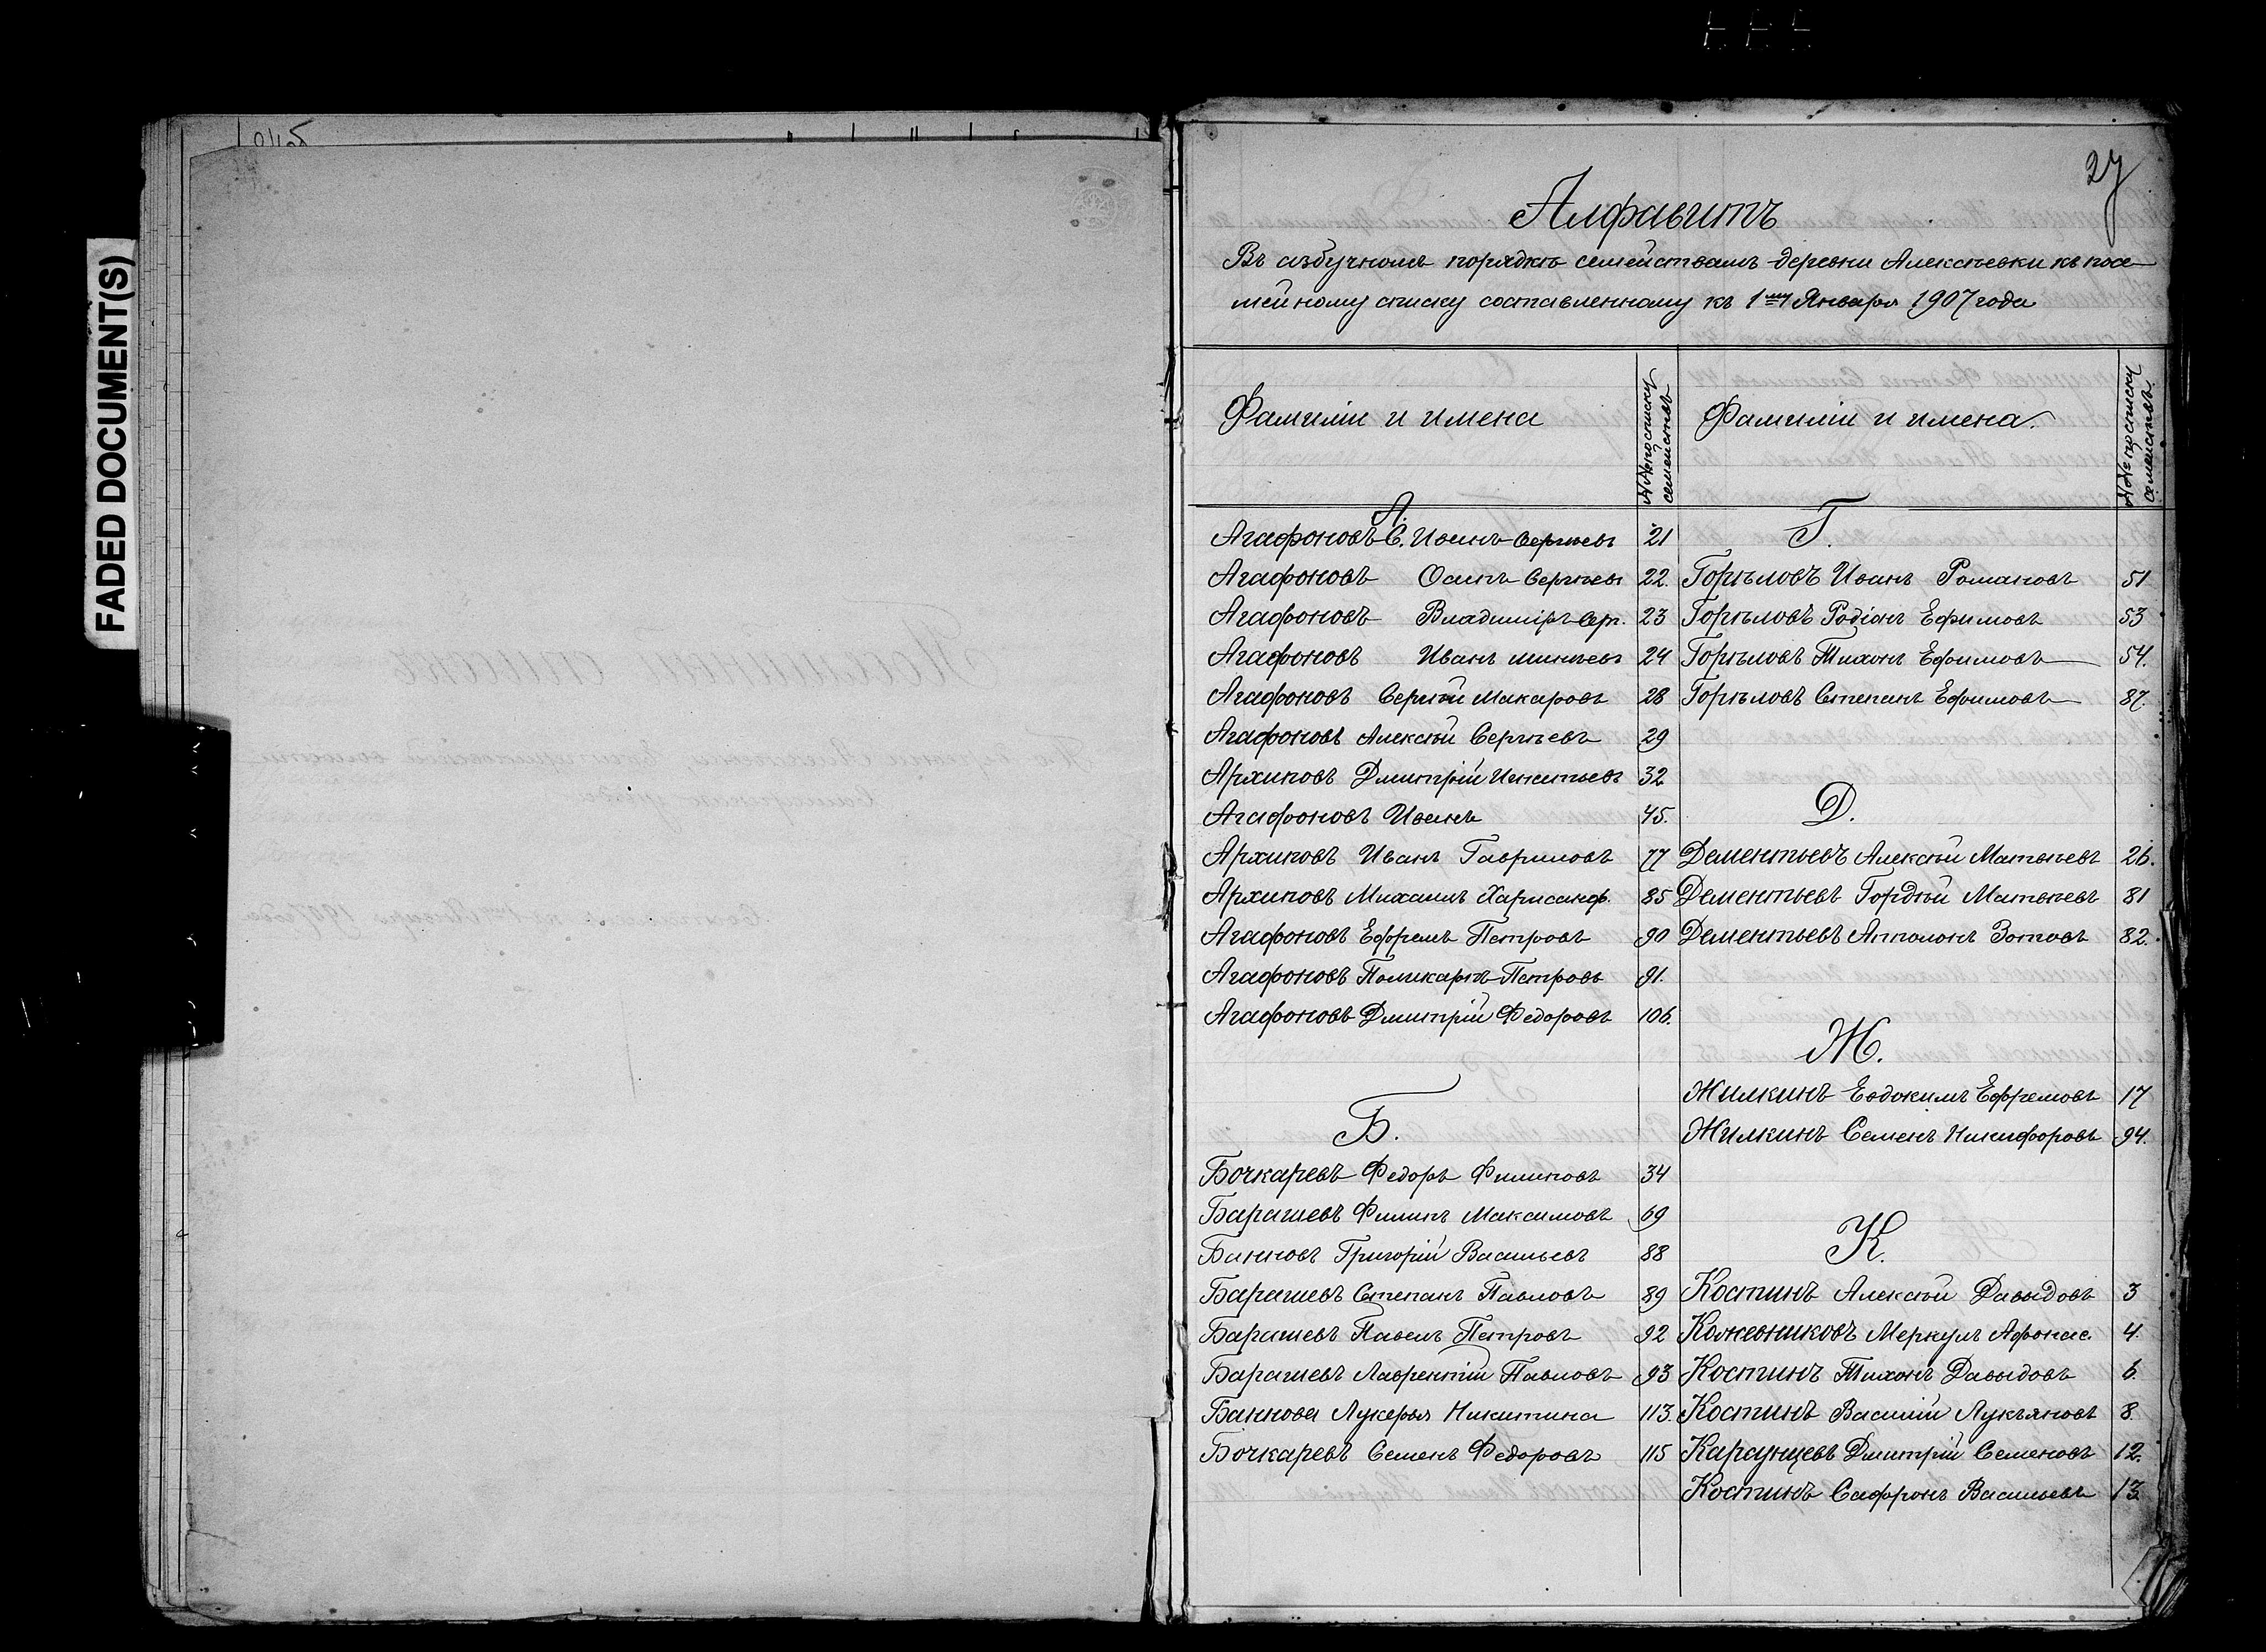 FADED DOCUMENT(S)
27
Алфавитъ
Въ азбучномъ порядкѣ семействамъ деревни Алексѣевки къ посе-
мейному списку составленному къ 1му Января 1907 года
Фамиліи и имена
№№ по списку семействъ
Фамиліи и имена.
№№ по списку семействъ.
А.
Агафоновъ С. Иванъ Сергѣевъ 21
Агафоновъ Осипъ Сергѣевъ 22.
Агафоновъ Владиміръ Серг. 23
Агафоновъ Иванъ 24
Агафоновъ Сергѣй Макаровъ 28
Агафоновъ Алексѣй Сергѣевъ 29
Архиповъ Дмитрій Игнатьевъ 32
Агафоновъ Иванъ 45.
Архиповъ Иванъ Гавриловъ 77
Архиповъ Михаилъ Харисанф. 85
Агафоновъ Ефремъ Петровъ 90
Агафоновъ Поликарпъ Петровъ 91.
Агафоновъ Дмитрій Федоровъ 106.
Б.
Бочкаревъ Федоръ Филиповъ 34
Барашевъ Филипъ Максимовъ 69
Банновъ Григорій Васильевъ 88
Барашевъ Степанъ Павловъ 89
Барашевъ Павелъ Петровъ 92
Барашевъ Лаврентій Павловъ 93
Баннова Лукерья Никитина 113.
Бочкаревъ Семенъ Федоровъ 115
Г.
Горѣловъ Иванъ Романовъ 51
Горѣловъ Родіонъ Ефимовъ 53
Горѣловъ Тихонъ Ефимовъ 54.
Горѣловъ Степанъ Ефимовъ 87.
Д.
Дементьевъ Алексѣй Матвѣевъ 26.
Дементьевъ Гордѣй Матвѣевъ 81
Дементьевъ Апполонъ Зотовъ 82.
Ж.
Жилкинъ Евдокимъ Ефремовъ 17
Жилкинъ Семенъ Никифоровъ 94.
К.
Костинъ Алексѣй Давыдовъ 3
Кожевниковъ Меркулъ Афонас. 4.
Костинъ Тихонъ Давыдовъ 6.
Костинъ Василій Лукъяновъ 8.
Караунцевъ Дмитрій Семеновъ 12.
Костинъ Сафронъ Васильевъ 13.